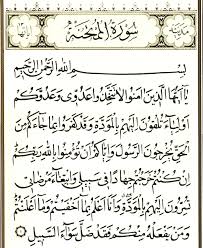 سُورَةُ الْمُمْتَحَنَةِ
بِسْمِ اللهِ الرَّحْمَنِ الرَّحِيمِ
يَا أَيُّهَا الَّذِينَ آمَنُوا لَا تَتَّخِذُوا عَدُوِّي وَعَدُوَّكُمْ
أَوْلِيَاءَ تُلْقُونَ إِلَيْهِمْ بِالْمَوَدَّةِ وَقَدْ كَفَرُوا بِمَا جَاءَكُمْ مِنَ
الْحَقِّ يُخْرِجُونَ الرَّسُولَ وَإِيَّاكُمْ أَنْ تُؤْمِنُوا بِاللهِ رَبِّكُمْ
إِنْ كُنْتُمْ خَرَجْتُمْ جِهَادًا فِي سَبِيلِي وَابْتِغَاءَ مَرْضَاتِي
تُسِرُّونَ إِلَيْهِمْ بِالْمَوَدَّةِ وَأَنَا أَعْلَمُ بِمَا أَخْفَيْتُمْ وَمَا أَعْلَنْتُمْ
وَمَنْ يَفْعَلْهُ مِنْكُمْ فَقَدْ ضَلَّ سَوَاءَ السَّبِيلِ